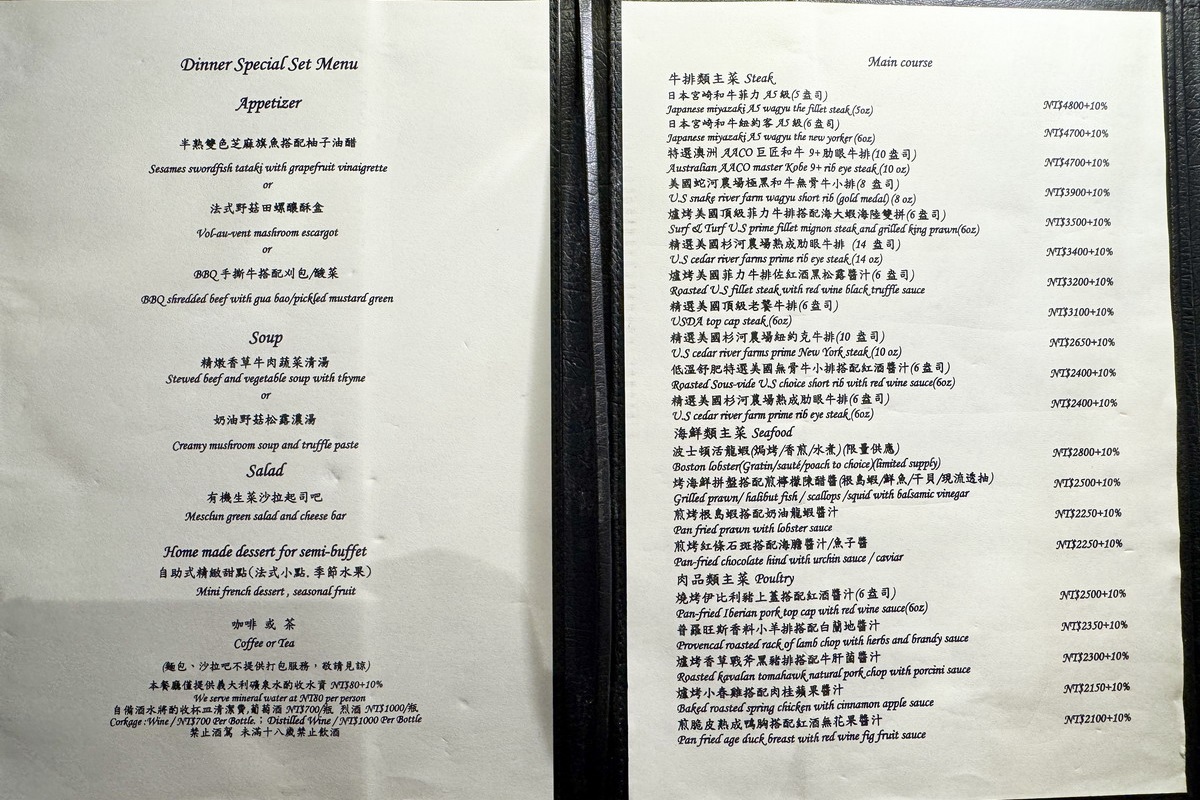 Dinner Special Set Menu
Appetizer
半熟雙色芝麻旗魚搭配柚子油醋
Sesames swordfish tataki with grapefruit vinaigrette
or
法式野菇田螺釀酥盒
Vol-au-vent mashroom escargot
or
BBQ手撕牛搭配刈包/酸菜
BBQ shredded beef with gua bao/pickled mustard green
Soup
精燉香草牛肉蔬菜清湯
Stewed beef and vegetable soup with thyme
or
奶油野菇松露濃湯
Creamy mushroom soup and truffle paste
Salad
有機生菜沙拉起司吧
Mesclun green salad and cheese bar
Home made dessert for semi-buffet
自助式精緻甜點(法式小點. 季節水果)
Mini french dessert , seasonal fruit
咖啡 或 茶
Coffee or Tea
(麵包、沙拉吧不提供打包服務，敬請見諒)
本餐廳僅提供義大利礦泉水酌收水資 NT$80+10%
We serve mineral water at NT80 per person
自備酒水將酌收杯皿清潔費,葡萄酒 NT$700/瓶 烈酒 NT$1000/瓶
Corkage :Wine / NT$700 Per Bottle. ; Distilled Wine / NT$1000 Per Bottle
禁止酒駕 未滿十八歲禁止飲酒
Main course
牛排類主菜 Steak
日本宮崎和牛菲力 A5 級(5 盎司)
Japanese miyazaki A5 wagyu the fillet steak (5oz) NT$4800+10%
日本宮崎和牛紐約客 A5 級(6 盎司)
Japanese miyazaki A5 wagyu the new yorker (6oz) NT$4700+10%
特選澳洲 AACO 巨匠和牛 9+肋眼牛排(10 盎司)
Australian AACO master Kobe 9+ rib eye steak (10 oz) NT$4700+10%
美國蛇河農場極黑和牛無骨牛小排(8 盎司)
U.S snake river farm wagyu short rib (gold medal) (8 oz) NT$3900+10%
爐烤美國頂級菲力牛排搭配海大蝦海陸雙拼(6 盎司)
Surf & Turf U.S prime fillet mignon steak and grilled king prawn(6oz) NT$3500+10%
精選美國杉河農場熟成肋眼牛排 (14 盎司)
U.S cedar river farms prime rib eye steak (14 oz) NT$3400+10%
爐烤美國菲力牛排佐紅酒黑松露醬汁(6 盎司)
Roasted U.S fillet steak with red wine black truffle sauce NT$3200+10%
精選美國頂級老饕牛排(6 盎司)
USDA top cap steak (6oz) NT$3100+10%
精選美國杉河農場紐約克牛排(10 盎司)
U.S cedar river farms prime New York steak (10 oz) NT$2650+10%
低溫舒肥特選美國無骨牛小排搭配紅酒醬汁(6 盎司)
Roasted Sous-vide U.S choice short rib with red wine sauce(6oz) NT$2400+10%
精選美國杉河農場熟成肋眼牛排 (6 盎司)
U.S cedar river farm prime rib eye steak (6oz) NT$2400+10%
海鮮類主菜 Seafood
波士頓活龍蝦(焗烤/香煎/水煮)(限量供應)
Boston lobster(Gratin/sauté/poach to choice)(limited supply) NT$2800+10%
烤海鮮拼盤搭配煎檸檬陳醋醬(根島蝦/鮮魚/干貝/現流透抽)
Grilled prawn/ halibut fish / scallops /squid with balsamic vinegar NT$2500+10%
煎烤根島蝦搭配奶油龍蝦醬汁
Pan fried prawn with lobster sauce NT$2250+10%
煎烤紅條石斑搭配海膽醬汁/魚子醬
Pan-fried chocolate hind with urchin sauce / caviar NT$2250+10%
肉品類主菜 Poultry
燒烤伊比利豬上蓋搭配紅酒醬汁(6 盎司)
Pan-fried Iberian pork top cap with red wine sauce(6oz) NT$2500+10%
普羅旺斯香料小羊排搭配白蘭地醬汁
Provencal roasted rack of lamb chop with herbs and brandy sauce NT$2350+10%
爐烤香草戰斧黑豬排搭配牛肝菌醬汁
Roasted kavalan tomahawk natural pork chop with porcini sauce NT$2300+10%
爐烤小春雞搭配肉桂蘋果醬汁
Baked roasted spring chicken with cinnamon apple sauce NT$2150+10%
煎脆皮熟成鴨胸搭配紅酒無花果醬汁
Pan fried age duck breast with red wine fig fruit sauce NT$2100+10%